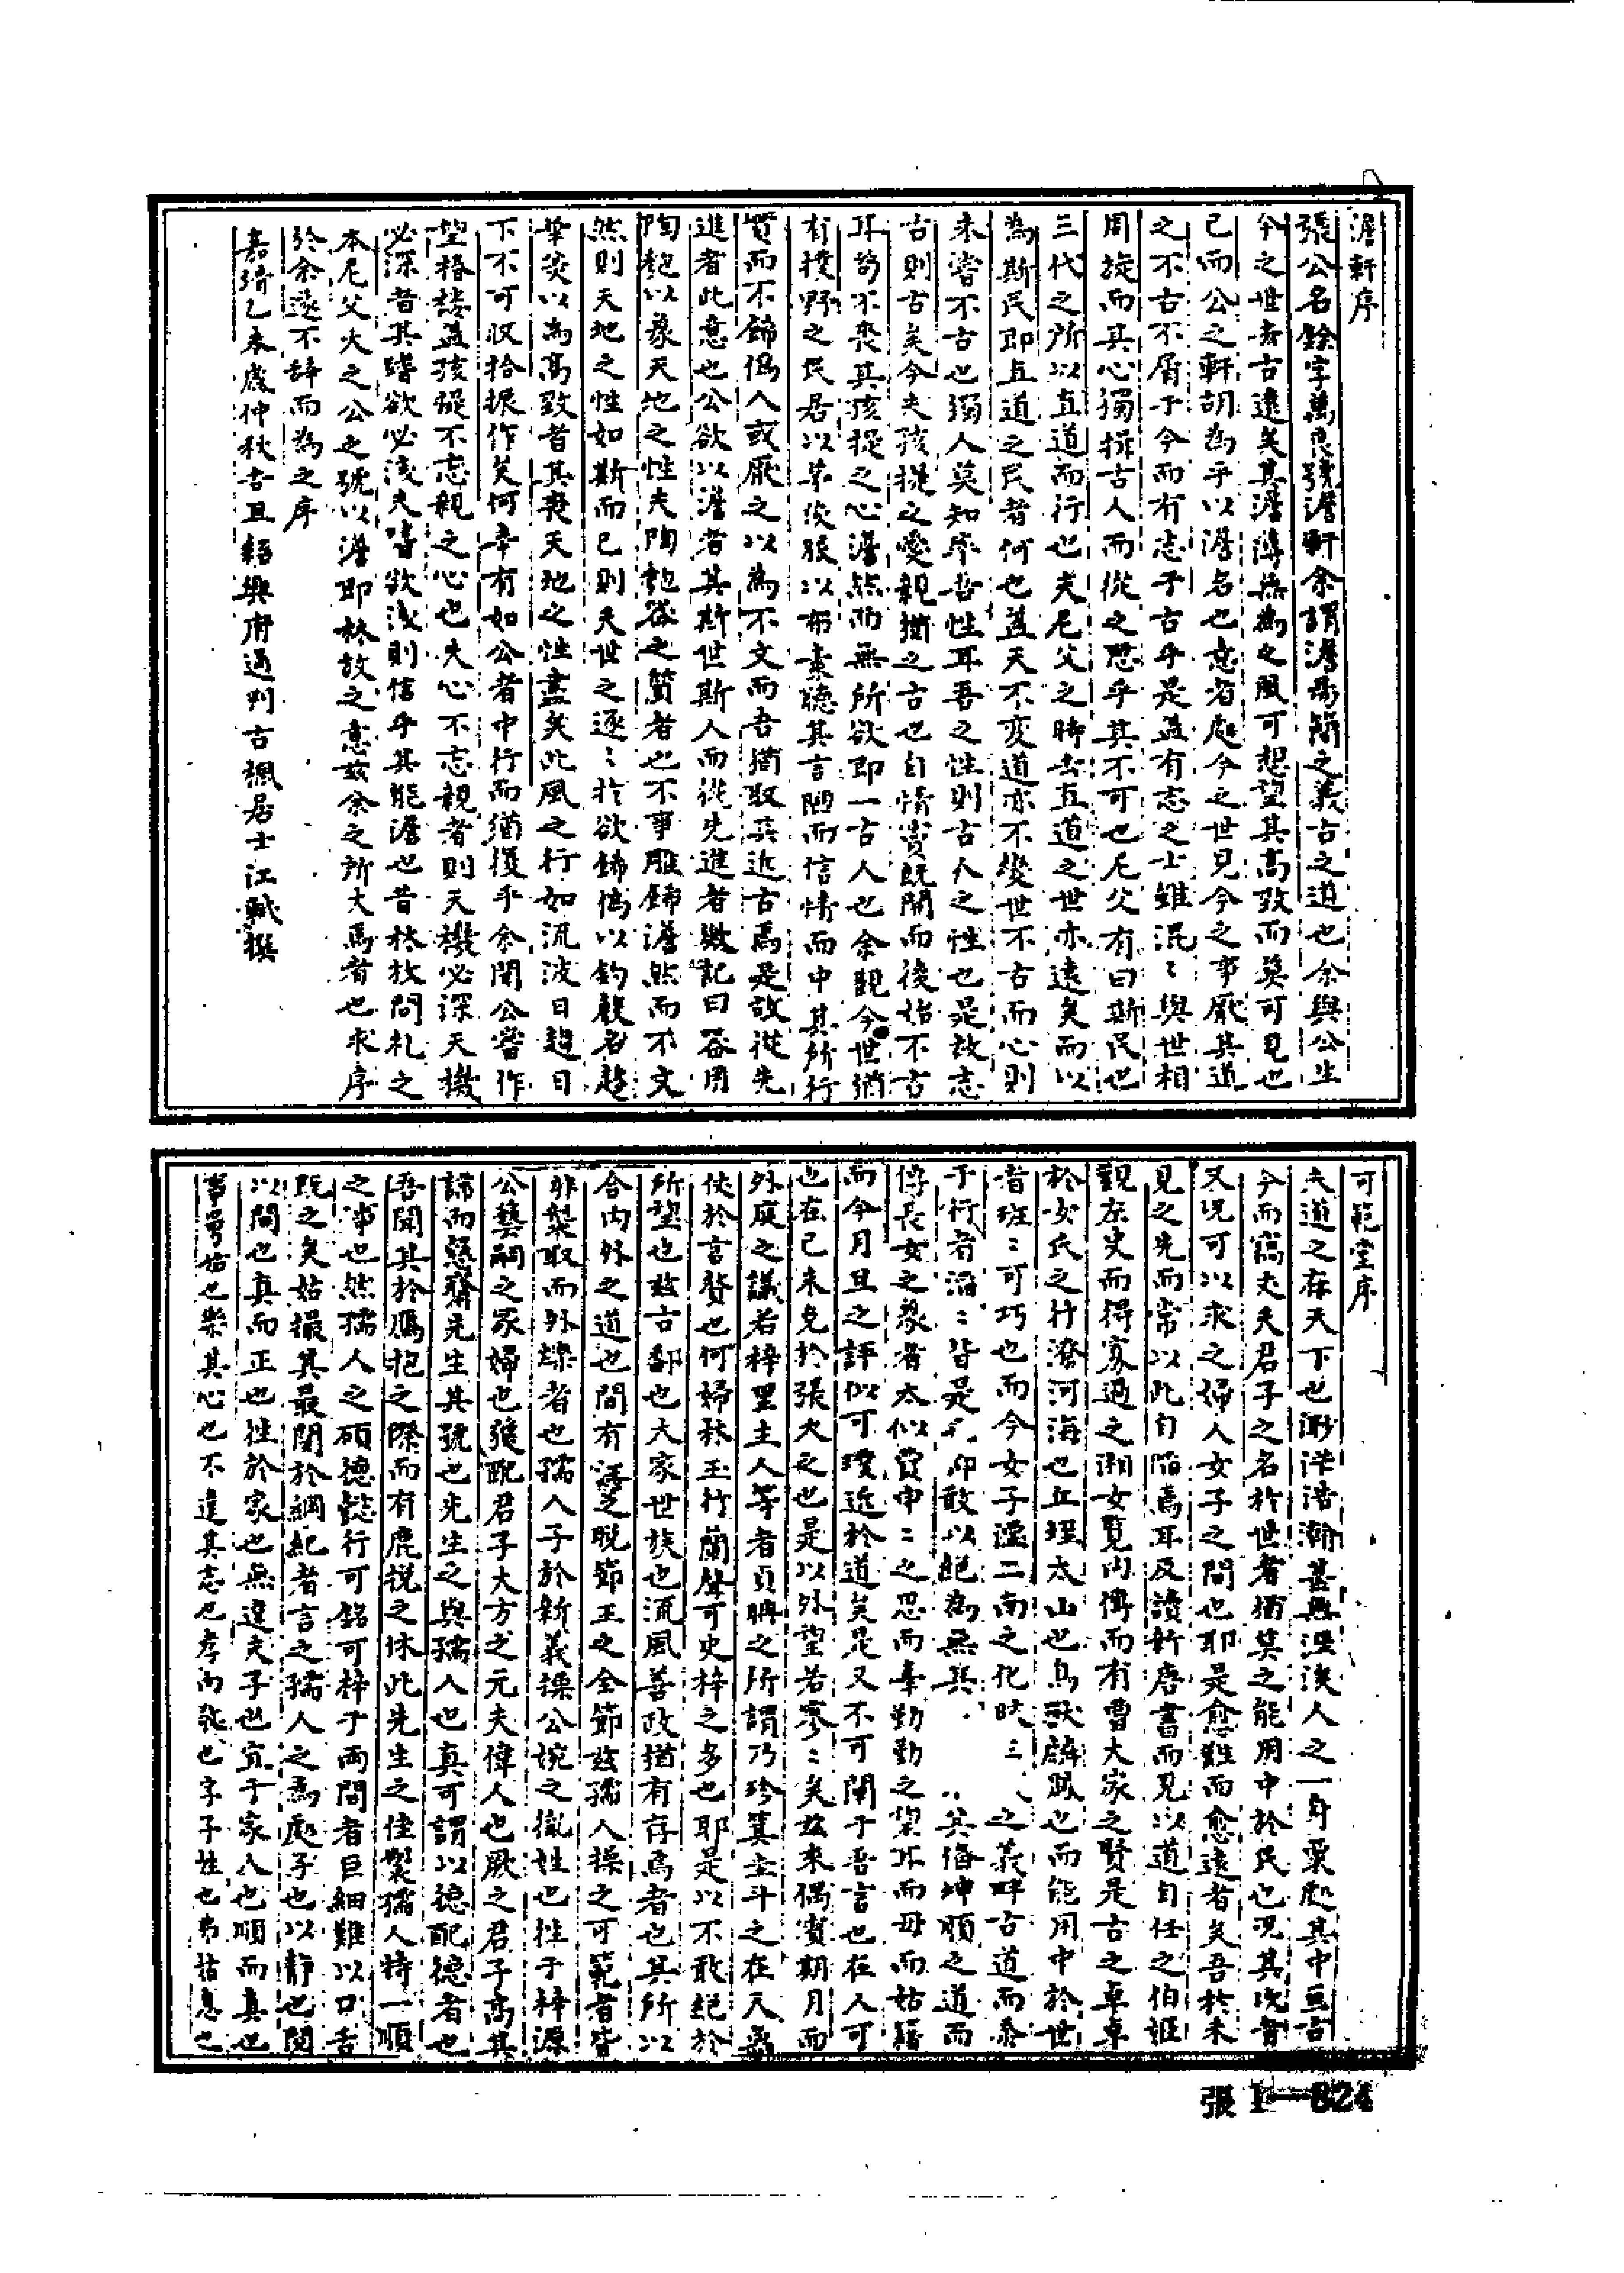 澹軒序
張公名銓字萬良號澹軒余謂澹易簡之義古之道也余與公生
今之世去古遠矣其澹薄無為之風可想望其高致而莫可見也
已而公之軒胡為乎以澹名也意者處今之世見今之事厭其道
之不古不屑于今而有志乎古乎是盖有志之士雖混〻與世相
周旋而其心獨揖古人而從之思乎其不可也尼父有曰斯民也
三代之所以直道而行也夫尼父之時去直道之世亦遠矣而以
為斯民即直道之民者何也盖天不变道亦不變世不古而心則
未嘗不古也獨人莫知率吾性耳吾之性則古人之性也是故志
古則古矣今夫孩提之愛親猶之古也自情竇既開而後始不古
耳苟不喪其孩提之心澹然而無所欲即一古人也余觀今世猶
有撲野之民居以茅茨服以布素聽其言陋而信情而中其所行
質而不飾偽人或厭之以為不文而吾猶取其近古焉是故從先
進者此意也公欲以澹者其斯世斯人而從先進者歟記曰器用
陶匏以象天地之性夫陶匏器之質者也不事雕飾澹然而不文
然則天地之性如斯而已則夫世之逐〻於欲飾偽以釣聲名趍
華炎以為高致者其喪天地之性盡矣此風之行如流波日趍日
下不可収拾振作矣何幸有如公者中行而猶獲乎余聞公嘗作
望椿楼盖孩提不忘親之心也夫心不忘親者則天機必深天機
必深者其嗜欲必浅夫嗜欲浅則信乎其能澹也昔林放問礼之
本尼父大之公之號以澹即林放之意玆余之所大焉者也求序
於余遂不辞而為之序
嘉靖乙未歲仲秋吉旦紹興府通判古楓居士江軾撰
可範堂序
夫道之在天下也渺洋浩瀚甚無涯涘人之一身粟處其中亘古
今而寓丈夫君子之名於世者猶莫之能用中於民也况其次者
又况可以求之婦人女子之間也耶是愈難而愈遠者矣吾於未
見之先而常以此自陷焉耳及讀新唐書而見以道自任之伯姬
觀左史而得寡過之湘女覧内傳而有曹大家之賢是古之卓卓
於女氏之行潦河海也丘垤太山也鳥獸麟鳳也而能用中於世
者班〻可巧也而今女子濡二南之化之義畔古道而忝
于行者滔〻皆是敢以絶為無其其侮坤順之道而
傳長女之象者太似費申〻之思而牽勤勤之望耳而毋而姑籍
而今月旦之評似可璞近於道矣是又不可闌于吾言也在人可
也在己未免於張大之也是以外望若寥〻矣玆來偶賓期月而
外庭之議若梓里主人等者貢聘之所謂乃珍箕主斗之在天
使於言贅也何婦林玉竹蘭聲可史梓之多也耶是以不敢絶於
所望也玆古鄱也大家世族也流風善政猶有存焉者也其所以
合内外之道也間有之脱節王之全節玆孺人操之可範者皆
非襲取而外鑠者也孺人子於新義操公婉之胤姓也性于梓源
公藝嗣之冢婦也獲配君子大方之元夫偉人也厥之君子高其
諦而慇齋先生其號也先生之與孺人也真可謂以德配德者也
吾聞其於鴈抱之際而有鹿挽之休此先生之佳製孺人特一順
之事也然孺人之碩德懿行可銘可梓于兩間者巨細難以口舌
既之矣姑撮其最関於綱紀者言之孺人之焉處子也以靜也閑
以閒也真而正也性於家也無違夫子也宜于家人也順而真也
事舅姑也樂其心也不違其志也孝而敬也字子姓也弗姑息也
張1—824